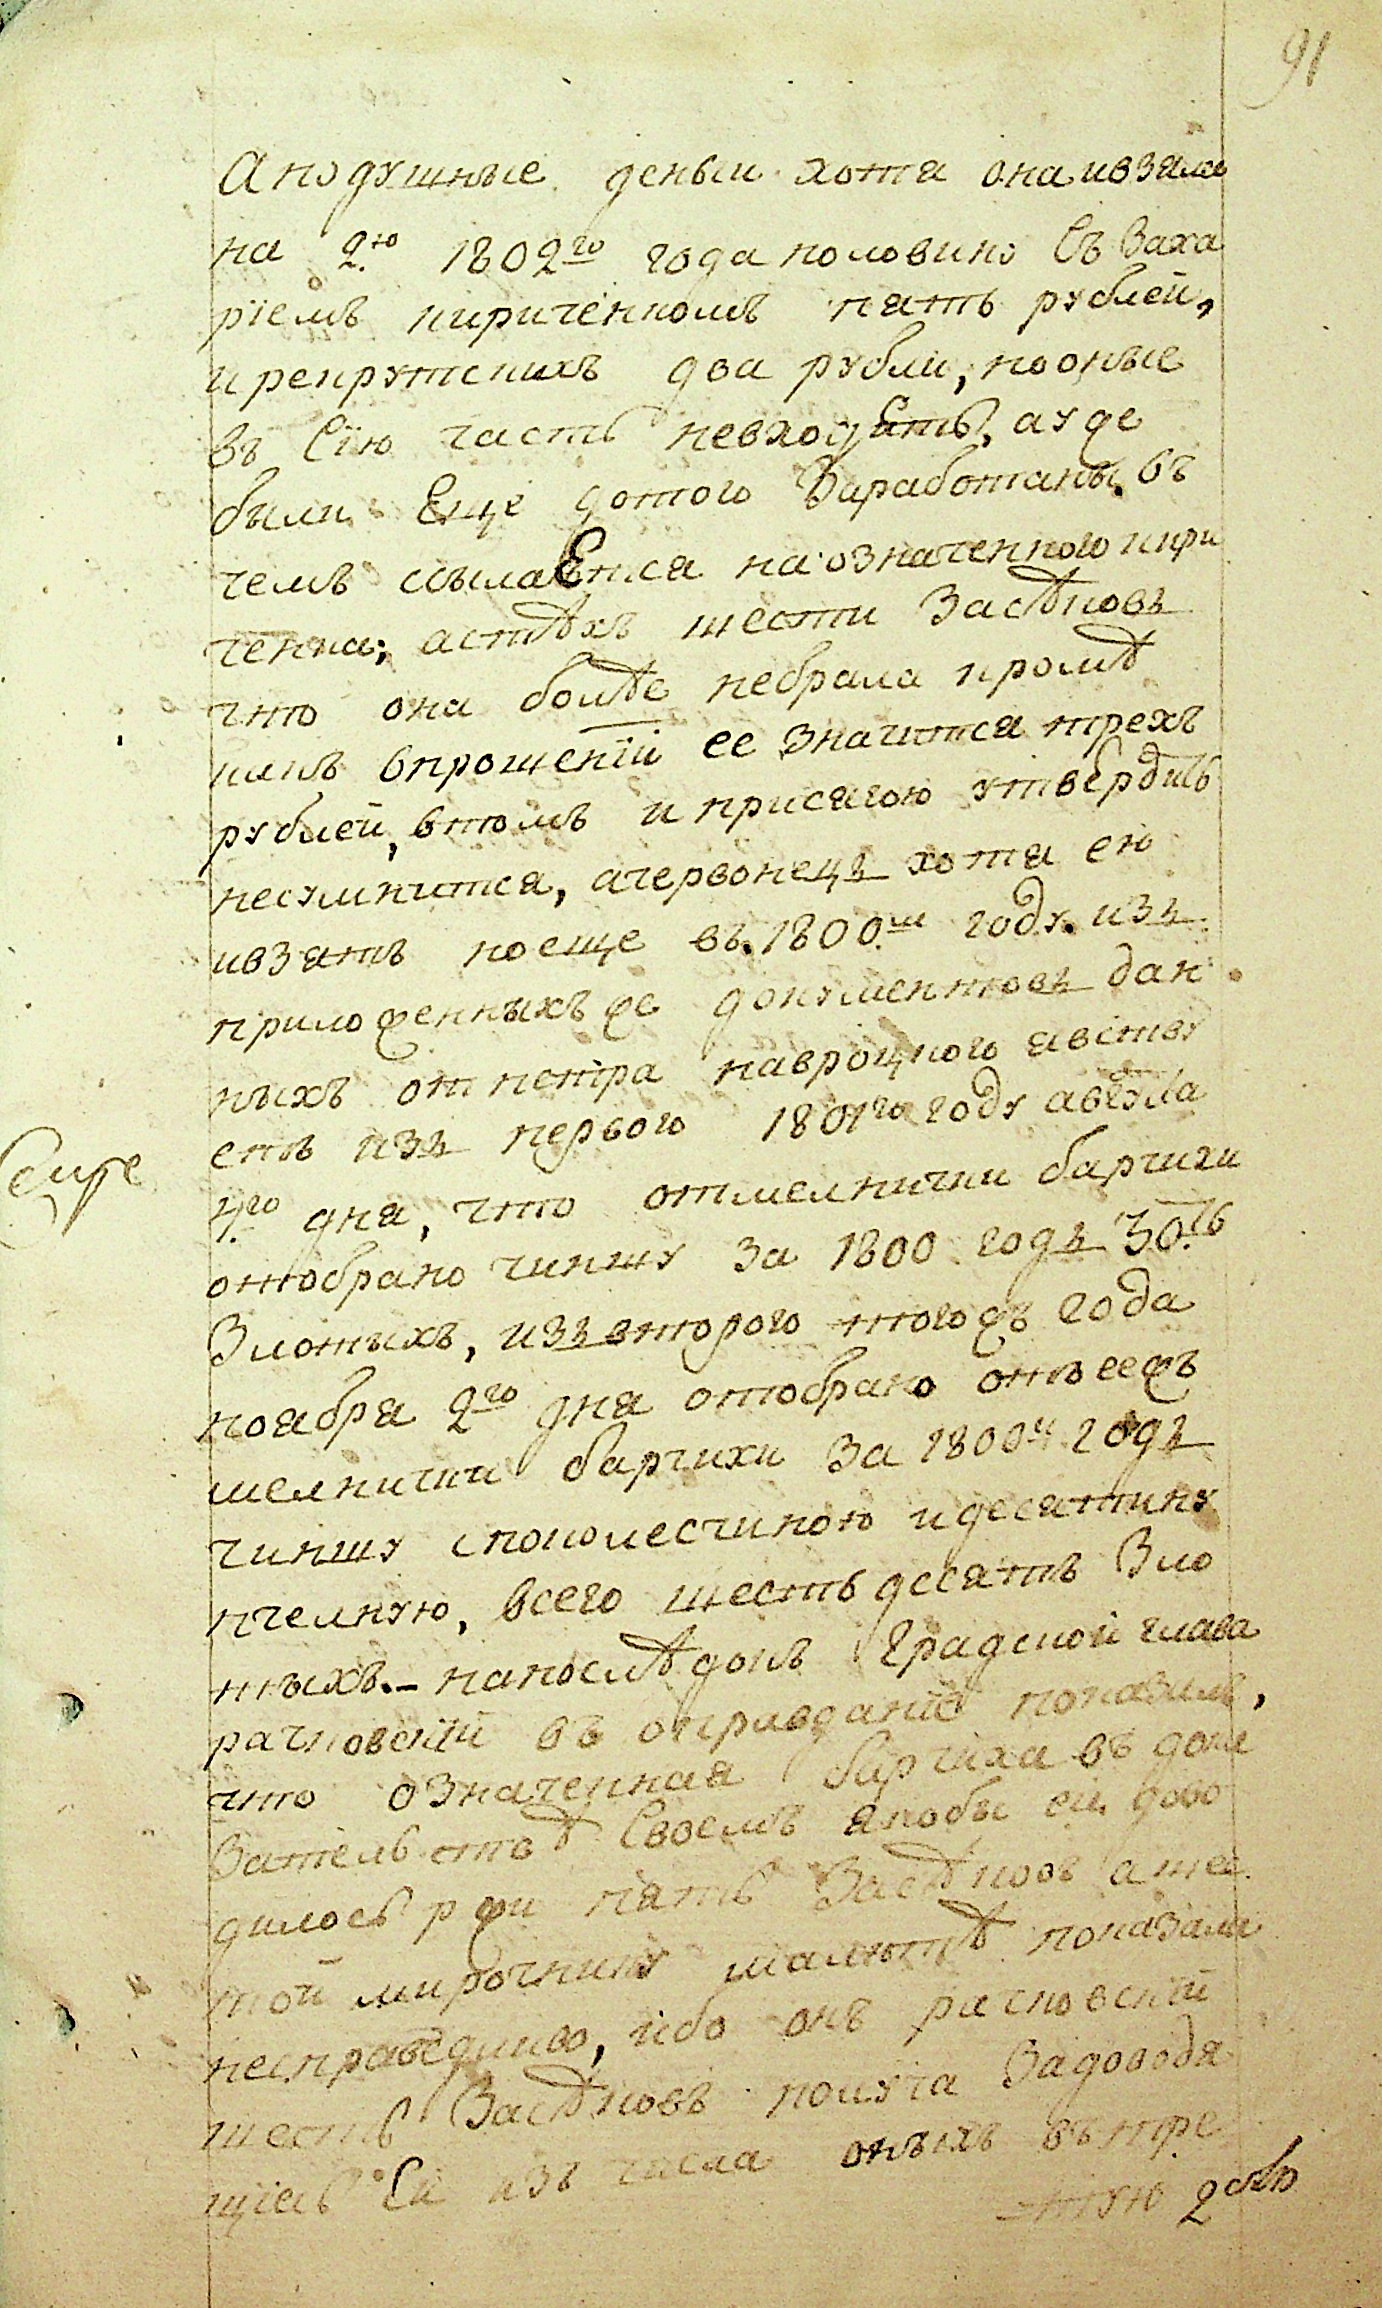 91
А подушные деньги хотя она ивзяла
на 2ю 1802го года половину Съ Заха
ріемъ киричен­комъ пять рублей,
и рекрутскихъ два рубли, но оные
въ Сію часть невходятъ, а уде
были Еще дотого Заработаны. въ
чемъ ссылаЕтся на означенного кири
ченка; астѣхъ шести Засѣковъ
что она болѣе небрала кромѣ
какъ впрошеніи ее значится трехъ
рублей, втомъ и присягою утвердить
несумнится, ачервонецъ хотя ею
ивзятъ но еще въ 1800м году. изъ
приложенныхъ же документовъ дан
ныхъ от петра навроцкого явству
етъ изъ первого 1801го году августа
4го дня, что отмелнички барчихи
отобрано чиншу За 1800 годъ 30ть
Злотыхъ, изъ второго того жъ года
ноября 2го дня отобрано отъ еежъ
мелнички барчихи За 1800й годъ
чиншу споколесчиною идесятину
пчелную, всего шестьдесятъ Зло
тыхъ. – напослѣдокъ Градской глава
рачковскій въ оправданіе показалъ,
что означенная барчиха въ дока
Зателствѣ Своемъ якобы ей дово
дилось ржи пять Засѣковъ а
той мирочнику показали
несправедливо, ибо онъ рачковскій
шесть Засѣковъ получа Задоводя
щіесь Ей изъ числа оныхъ въ тре
тую 2